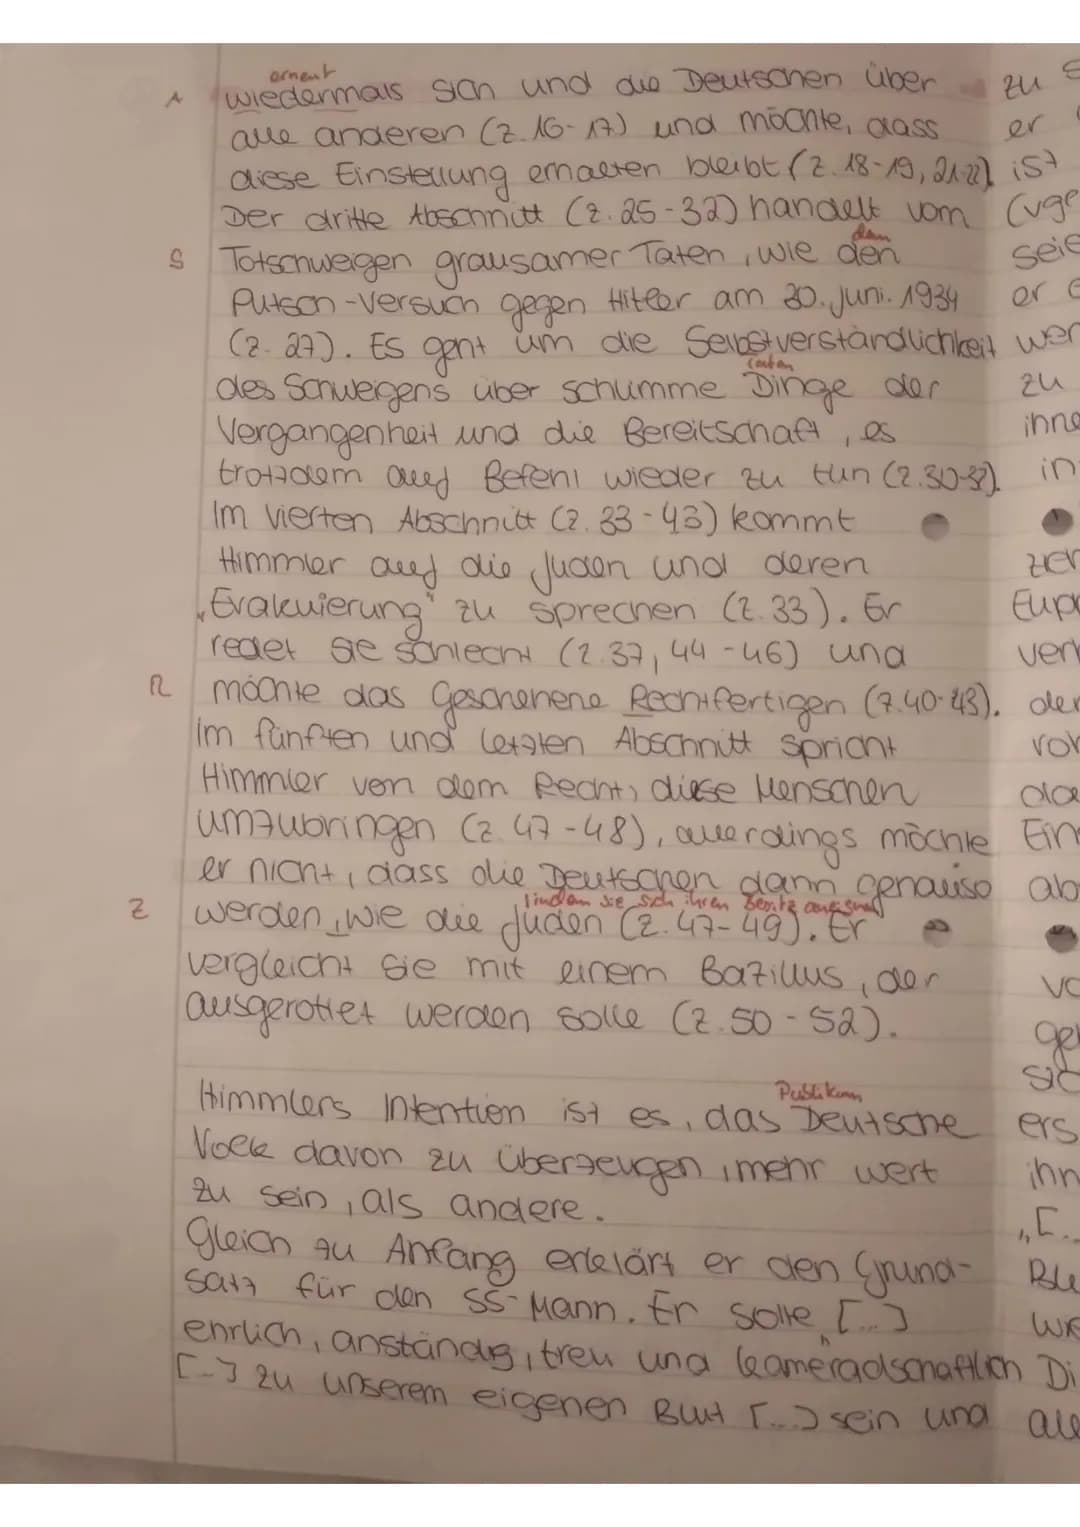 erneut
A wiedermals sich und die Deutschen über zu
alle anderen (Z. 16-17) und möchte, dass er
diese Einstellung erhalten bleibt (Z. 18-19, 21-22). ist
Der dritte Abschnitt (Z. 25-32) handelt vom (vge
dem
S Totschweigen grausamer Taten, wie den seie
Putsch-Versuch gegen Hitler am 30. Juni. 1934 er
(Z. 27). Es geht um die Selbstverständlichkeit wer
taten
des Schweigens über schlimme Dinge der zu
Vergangenheit und die Bereitschaft, es ihne
trotzdem auf Befehl wieder zu tun (Z. 30-32). in
Im vierten Abschnitt (Z. 33-43) kommt
Himmler auf die Juden und deren
„Evakuierung" zu sprechen (Z. 33). Er Eup
redet sie schlecht (Z. 37, 44-46) und ver
R möchte das Geschehene Rechtfertigen (Z. 40-43). der
Im fünften und letzten Abschnitt spricht
Himmler von dem Recht, diese Menschen
umzubringen (Z. 47-48), allerdings möchte Ein
er nicht, dass die Deutschen dann genauso ab
indem sie sich ihren Besitz
Z werden, wie die Juden (Z. 47-49). Er
vergleicht sie mit einem Bazillus, der
ausgerottet werden solle (Z. 50-52). ge
Publikum
Himmlers Intention ist es, das Deutsche ers
Volk davon zu überzeugen, mehr wert ihn
zu sein, als andere. „[..
Gleich zu Anfang erklärt er den Grund-
satz für den SS-Mann. Er solle „[...]
ehrlich, anständig, treu und kameradschaftlich Di
[...] zu unserem eigenen Blut [...] sein und